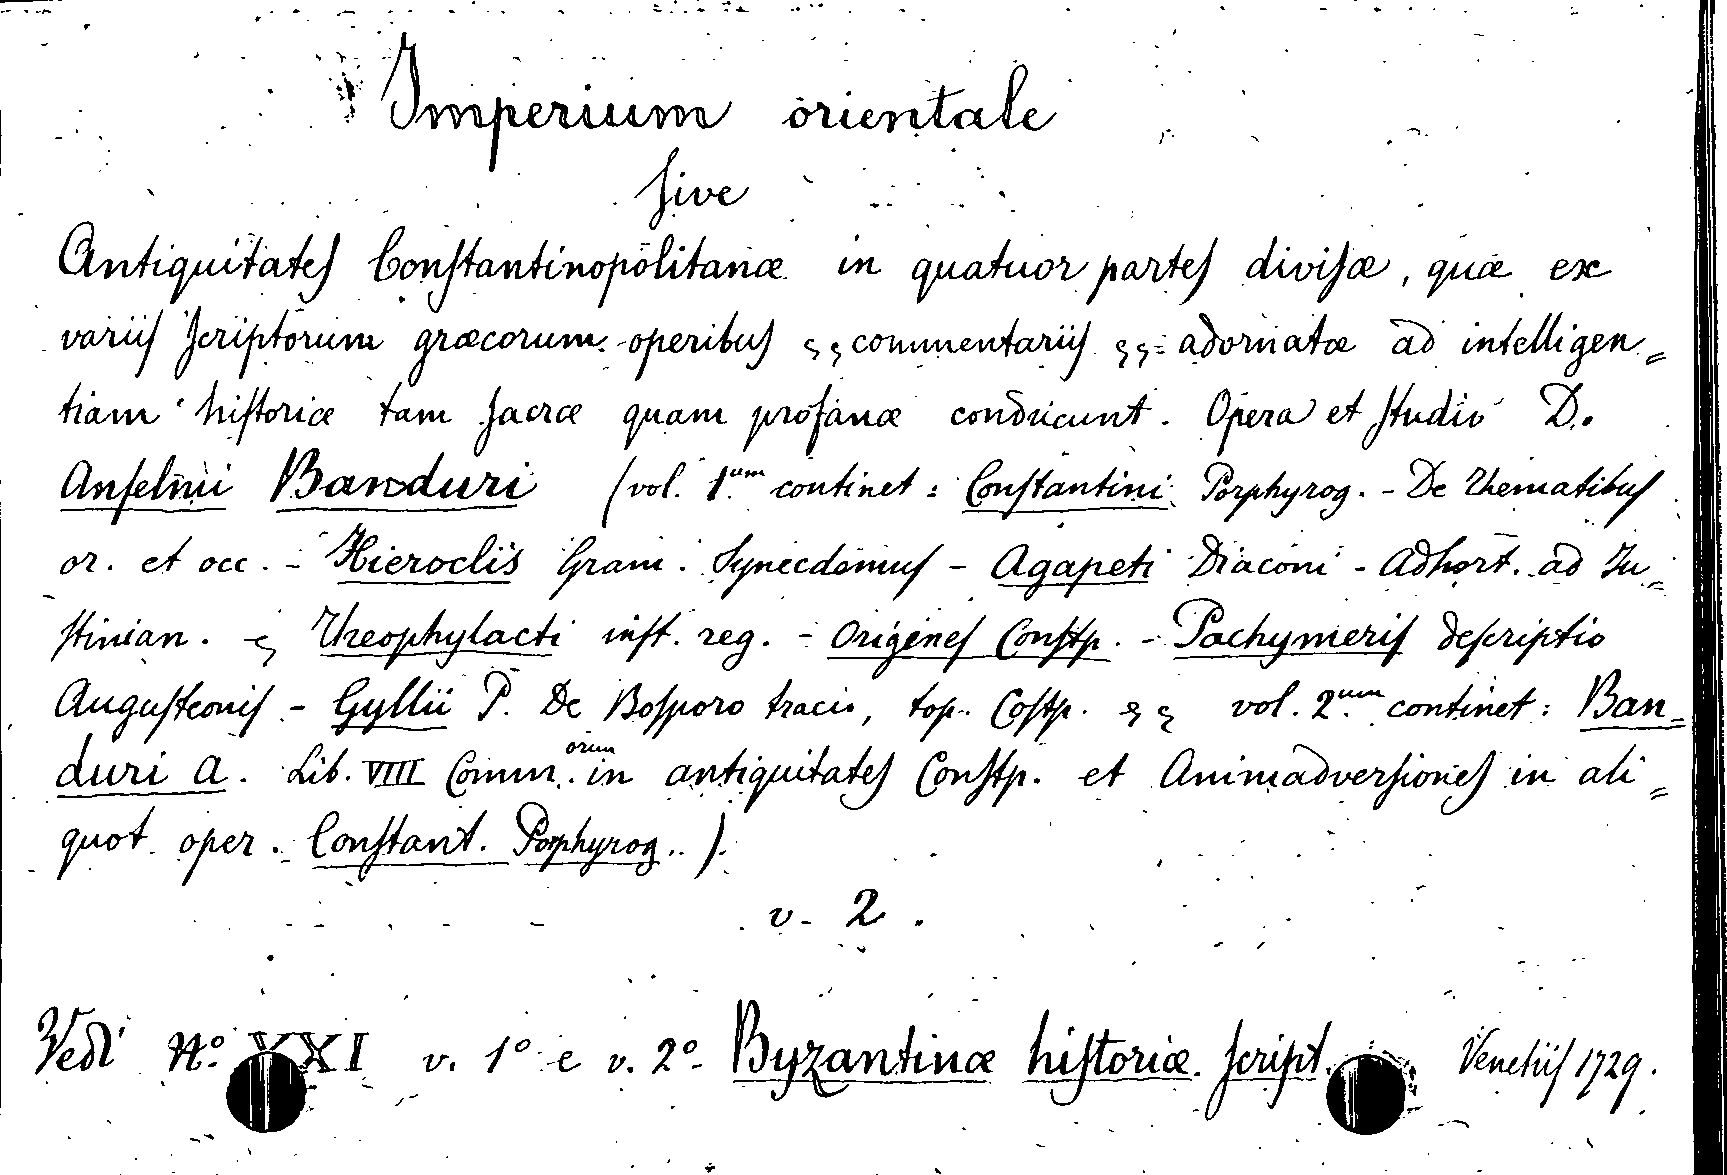 Imperium orientale
ſive
Antiquitateſ Conſtantinopolitanæ in quatuor parteſ diviſæ, quæ ex
variiſ ſcriptorum græcorum operibuſ & & commentariiſ & & adornatæ ad intelligen=
tiam hiſtoriæ tam ſacræ quam profanæ conducunt. Opera et ſtudio D.
Anſelmi Banduri (vol. 1.um continet: Conſtantini Porphyrog. - De Thematibuſ
or. et occ. - Hieroclis Gram. Synecdemuſ - Agapeti Diaconi - Adhort. ad Ju=
ſtinian. - & Theophylacti inſt. reg. - Origineſ Conſtp. - Pachymeriſ deſcriptio
Auguſteoniſ - Gyllii P. De Boſporo tracio, top. Coſtp. & & vol. 2.um continet: Ban=
duri A. Lib. VIII Comm.orum in antiquitateſ Conſtp. et Animadverſioneſ in ali=
quot oper. Conſtant. Porphyrog..).
v. 2.
Vedi N.o XXI v. 1o e v. 2o Byzantinæ hiſtoriæ ſcript. Venetiiſ 1729.